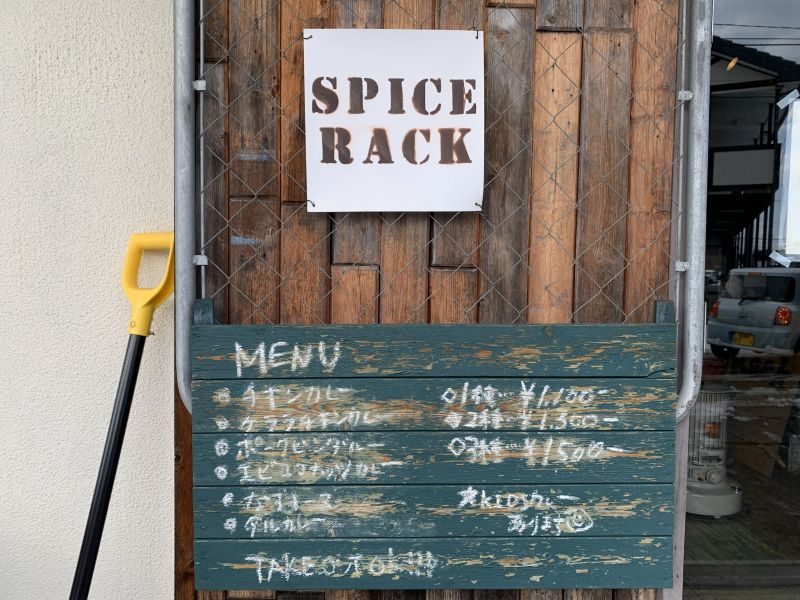 SPICE
RACK
MENU
チキンカレー ○1種… ¥1,100-
ケララチキンカレー ○2種… ¥1,300-
ポークビンダルー ○3種… ¥1,500-
エビココナッツカレー
ダルカレー あります
TAKE OK!!!